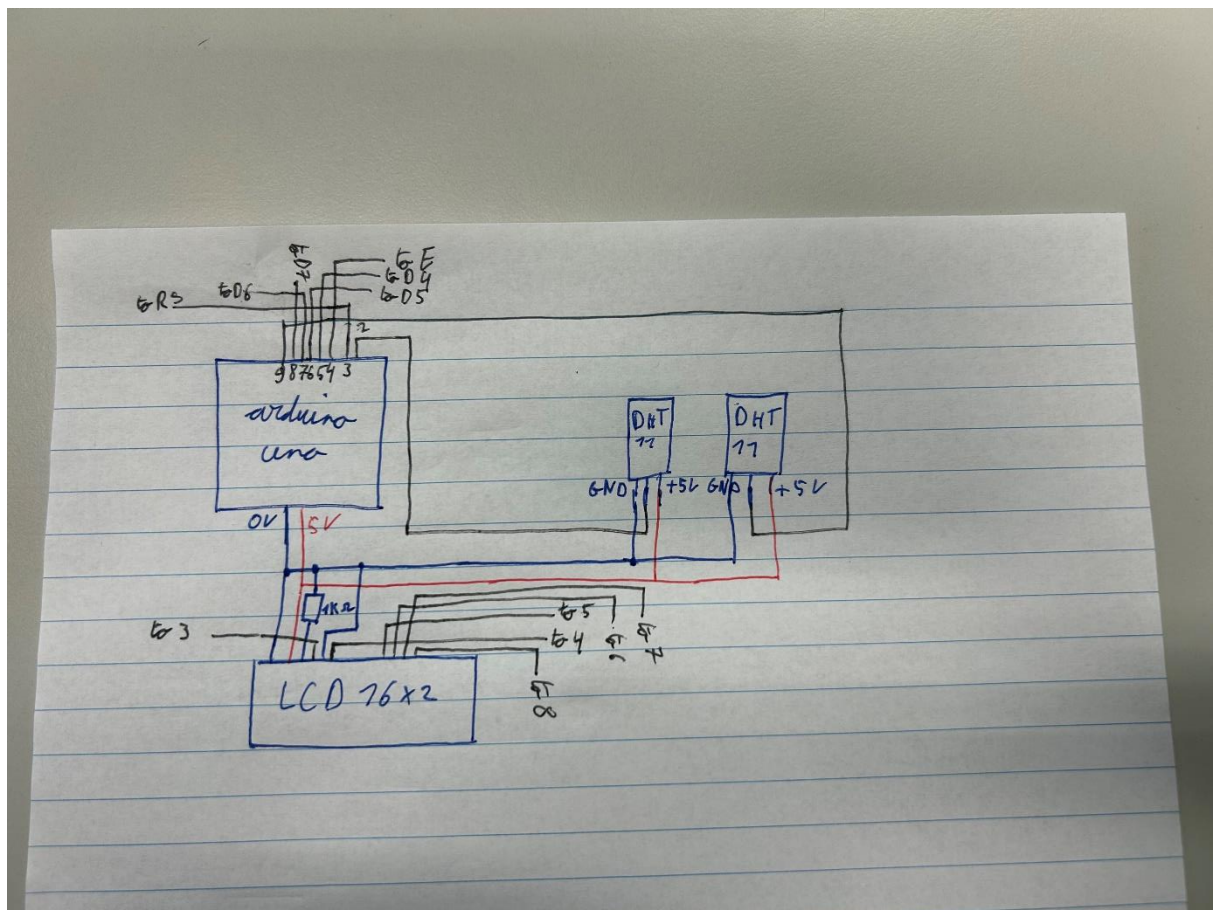 to D7
to E
to D4
to D6
to D5
to RS
2
9 8 7 6 5 4 3
arduino
uno
DHT
11
DHT
11
GND
+5V
GND
+5V
0V
5V
1KΩ
to 3
to 5
to 4
to 6
to 7
to 8
LCD 16x2